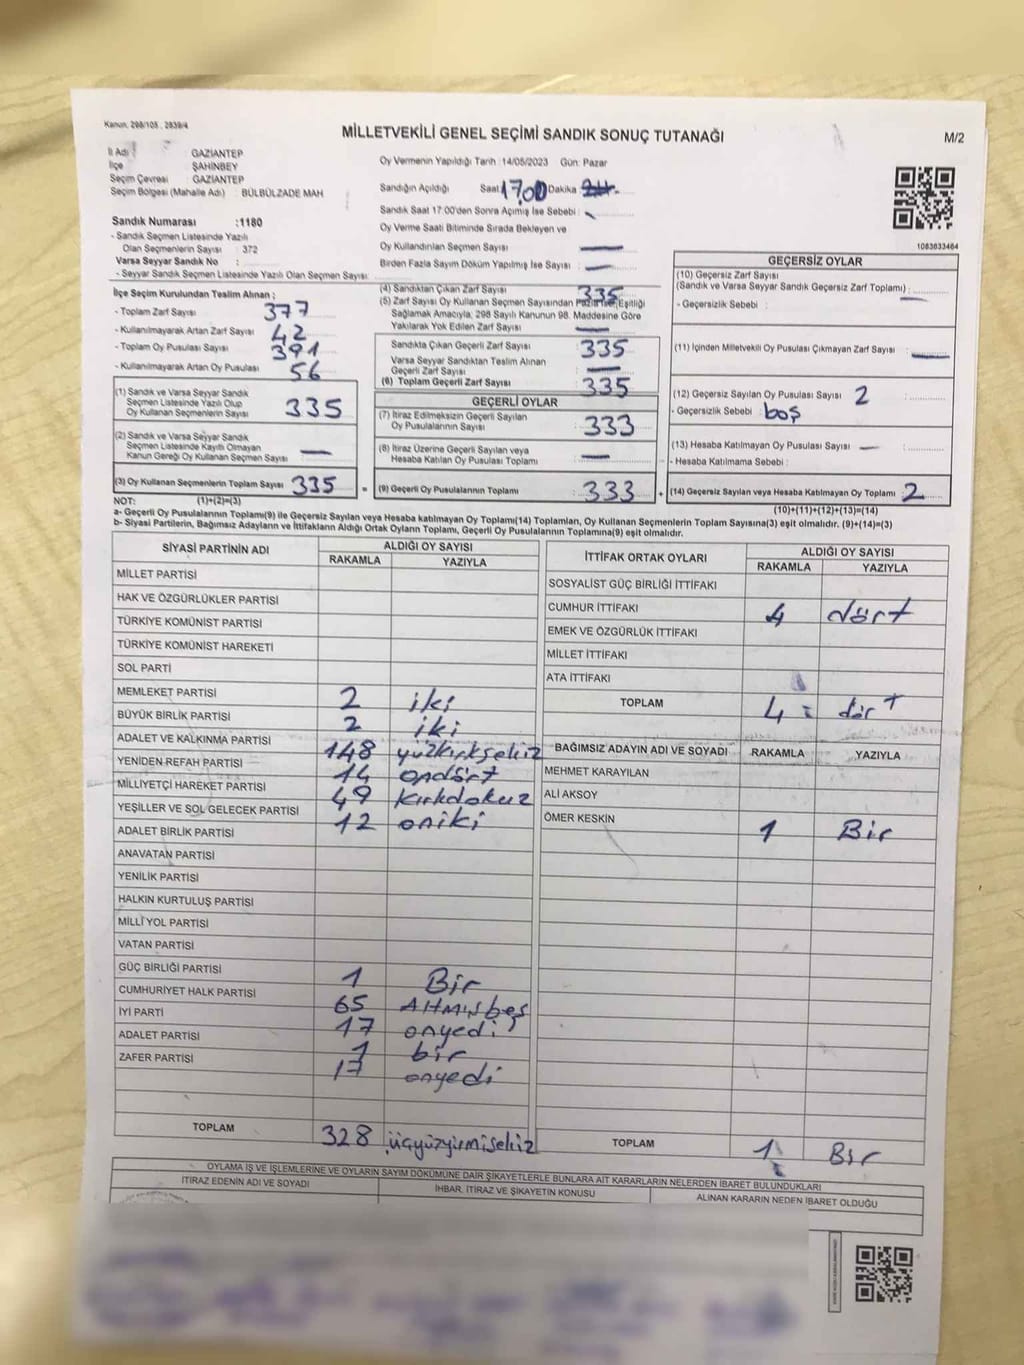 Kanun, 298/105 , 2839/4
MİLLETVEKİLİ GENEL SEÇİMİ SANDIK SONUÇ TUTANAĞI
M/2
İl Adı : GAZİANTEP
İlçe : ŞAHİNBEY
Seçim Çevresi : GAZİANTEP
Seçim Bölgesi (Mahalle Adı) : BÜLBÜLZADE MAH
Sandık Numarası :1180
- Sandık Seçmen Listesinde Yazılı
Olan Seçmenlerin Sayısı : 372
Varsa Seyyar Sandık No :
- Seyyar Sandık Seçmen Listesinde Yazılı Olan Seçmen Sayısı:
Oy Vermenin Yapıldığı Tarih :14/05/2023 Gün: Pazar
Sandığın Açıldığı Saat 17.00 Dakika
Sandık Saat 17:00'den Sonra Açılmış İse Sebebi :
Oy Verme Saati Bitiminde Sırada Bekleyen ve
Oy Kullandırılan Seçmen Sayısı
Birden Fazla Sayım Döküm Yapılmış İse Sayısı :
1083633464
İlçe Seçim Kurulundan Teslim Alınan :
- Toplam Zarf Sayısı : 377
- Kullanılmayarak Artan Zarf Sayısı : 42
- Toplam Oy Pusulası Sayısı : 391
- Kullanılmayarak Artan Oy Pusulası : 56
(1) Sandık ve Varsa Seyyar Sandık
Seçmen Listesinde Yazılı Olup
Oy Kullanan Seçmenlerin Sayısı 335
(2) Sandık ve Varsa Seyyar Sandık
Seçmen Listesinde Kayıtlı Olmayan
Kanun Gereği Oy Kullanan Seçmen Sayısı :
(3) Oy Kullanan Seçmenlerin Toplam Sayısı 335
(4) Sandıktan Çıkan Zarf Sayısı 335
(5) Zarf Sayısı Oy Kullanan Seçmen Sayısından Fazla İse, Eşitliği
Sağlamak Amacıyla; 298 Sayılı Kanunun 98. Maddesine Göre
Yakılarak Yok Edilen Zarf Sayısı
Sandıkta Çıkan Geçerli Zarf Sayısı : 335
Varsa Seyyar Sandıktan Teslim Alınan
Geçerli Zarf Sayısı
(6) Toplam Geçerli Zarf Sayısı : 335
GEÇERLİ OYLAR
(7) İtiraz Edilmeksizin Geçerli Sayılan
Oy Pusulalarının Sayısı : 333
(8) İtiraz Üzerine Geçerli Sayılan veya
Hesaba Katılan Oy Pusulası Toplamı
= (9) Geçerli Oy Pusulalarının Toplamı : 333 +
GEÇERSİZ OYLAR
(10) Geçersiz Zarf Sayısı
(Sandık ve Varsa Seyyar Sandık Geçersiz Zarf Toplamı) :
- Geçersizlik Sebebi :
(11) İçinden Milletvekili Oy Pusulası Çıkmayan Zarf Sayısı
(12) Geçersiz Sayılan Oy Pusulası Sayısı 2
- Geçersizlik Sebebi : boş
(13) Hesaba Katılmayan Oy Pusulası Sayısı
- Hesaba Katılmama Sebebi :
(14) Geçersiz Sayılan veya Hesaba Katılmayan Oy Toplamı 2
NOT: (1)+(2)=(3)
(10)+(11)+(12)+(13)=(14)
a- Geçerli Oy Pusulalarının Toplamı(9) ile Geçersiz Sayılan veya Hesaba katılmayan Oy Toplamı(14) Toplamları, Oy Kullanan Seçmenlerin Toplam Sayısına(3) eşit olmalıdır. (9)+(14)=(3)
b- Siyasi Partilerin, Bağımsız Adayların ve İttifakların Aldığı Ortak Oyların Toplamı, Geçerli Oy Pusulalarının Toplamına(9) eşit olmalıdır.
SİYASİ PARTİNİN ADI ALDIĞI OY SAYISI
RAKAMLA YAZIYLA
MİLLET PARTİSİ
HAK VE ÖZGÜRLÜKLER PARTİSİ
TÜRKİYE KOMÜNİST PARTİSİ
TÜRKİYE KOMÜNİST HAREKETİ
SOL PARTİ
MEMLEKET PARTİSİ 2 iki
BÜYÜK BİRLİK PARTİSİ 2 iki
ADALET VE KALKINMA PARTİSİ 148 yüzkırksekiz
YENİDEN REFAH PARTİSİ 14 ondört
MİLLİYETÇİ HAREKET PARTİSİ 49 kırkdokuz
YEŞİLLER VE SOL GELECEK PARTİSİ 12 oniki
ADALET BİRLİK PARTİSİ
ANAVATAN PARTİSİ
YENİLİK PARTİSİ
HALKIN KURTULUŞ PARTİSİ
MİLLİ YOL PARTİSİ
VATAN PARTİSİ
GÜÇ BİRLİĞİ PARTİSİ 1 Bir
CUMHURİYET HALK PARTİSİ 65 Altmışbeş
İYİ PARTİ 17 onyedi
ADALET PARTİSİ 1 bir
ZAFER PARTİSİ 17 onyedi
TOPLAM 328 üçyüzyirmisekiz
İTTİFAK ORTAK OYLARI ALDIĞI OY SAYISI
RAKAMLA YAZIYLA
SOSYALİST GÜÇ BİRLİĞİ İTTİFAKI
CUMHUR İTTİFAKI 4 dört
EMEK VE ÖZGÜRLÜK İTTİFAKI
MİLLET İTTİFAKI
ATA İTTİFAKI
TOPLAM 4 dört
BAĞIMSIZ ADAYIN ADI VE SOYADI RAKAMLA YAZIYLA
MEHMET KARAYILAN
ALİ AKSOY
ÖMER KESKİN 1 Bir
TOPLAM 1 Bir
OYLAMA İŞ VE İŞLEMLERİNE VE OYLARIN SAYIM DÖKÜMÜNE DAİR ŞİKAYETLERLE BUNLARA AİT KARARLARIN NELERDEN İBARET BULUNDUKLARI
İTİRAZ EDENİN ADI VE SOYADI İHBAR, İTİRAZ VE ŞİKAYETİN KONUSU ALINAN KARARIN NEDEN İBARET OLDUĞU